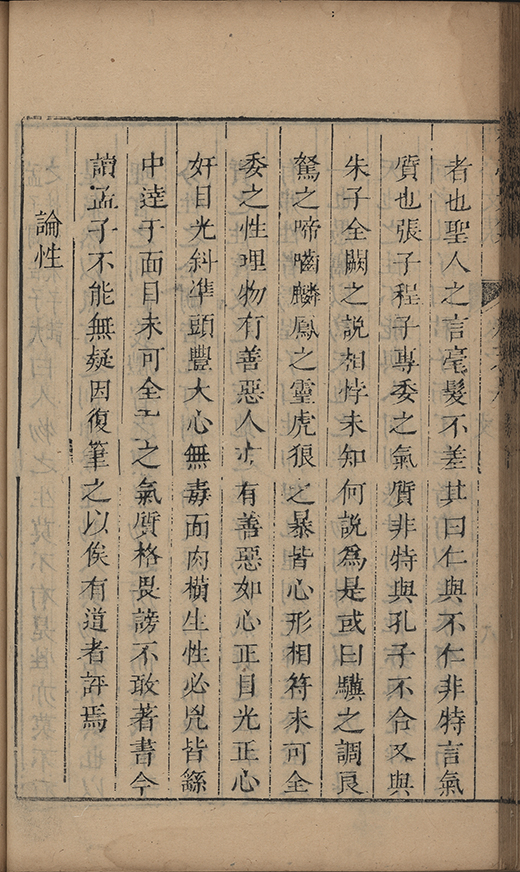 者也聖人之言毫髮不差其曰仁與不仁非特言氣
質也張子程子專委之氣質非特與孔子不合又與
朱子全闕之說相悖未知何說為是或曰驥之調良
駑之啼嚙麟鳳之靈虎狼之暴皆心形相符未可全
委之性理物有善惡人亦有善惡如心正目光正心
奸目光斜準頭豐大心無毒面肉橫生性必兇皆繇
中逹于面目未可全 之氣質格畏謗不敢著書今
讀孟子不能無疑因復筆之以俟有道者評焉
論性